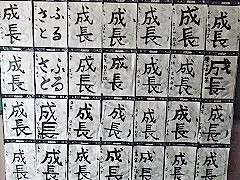 成長
ふる
さと
成長
成長
成長
成長
成長
成長
ふる
さと
成長
成長
成長
成長
成長
成長
成長
成長
成長
成長
成長
成長
成長
成長
成長
成長
成長
成長
成長